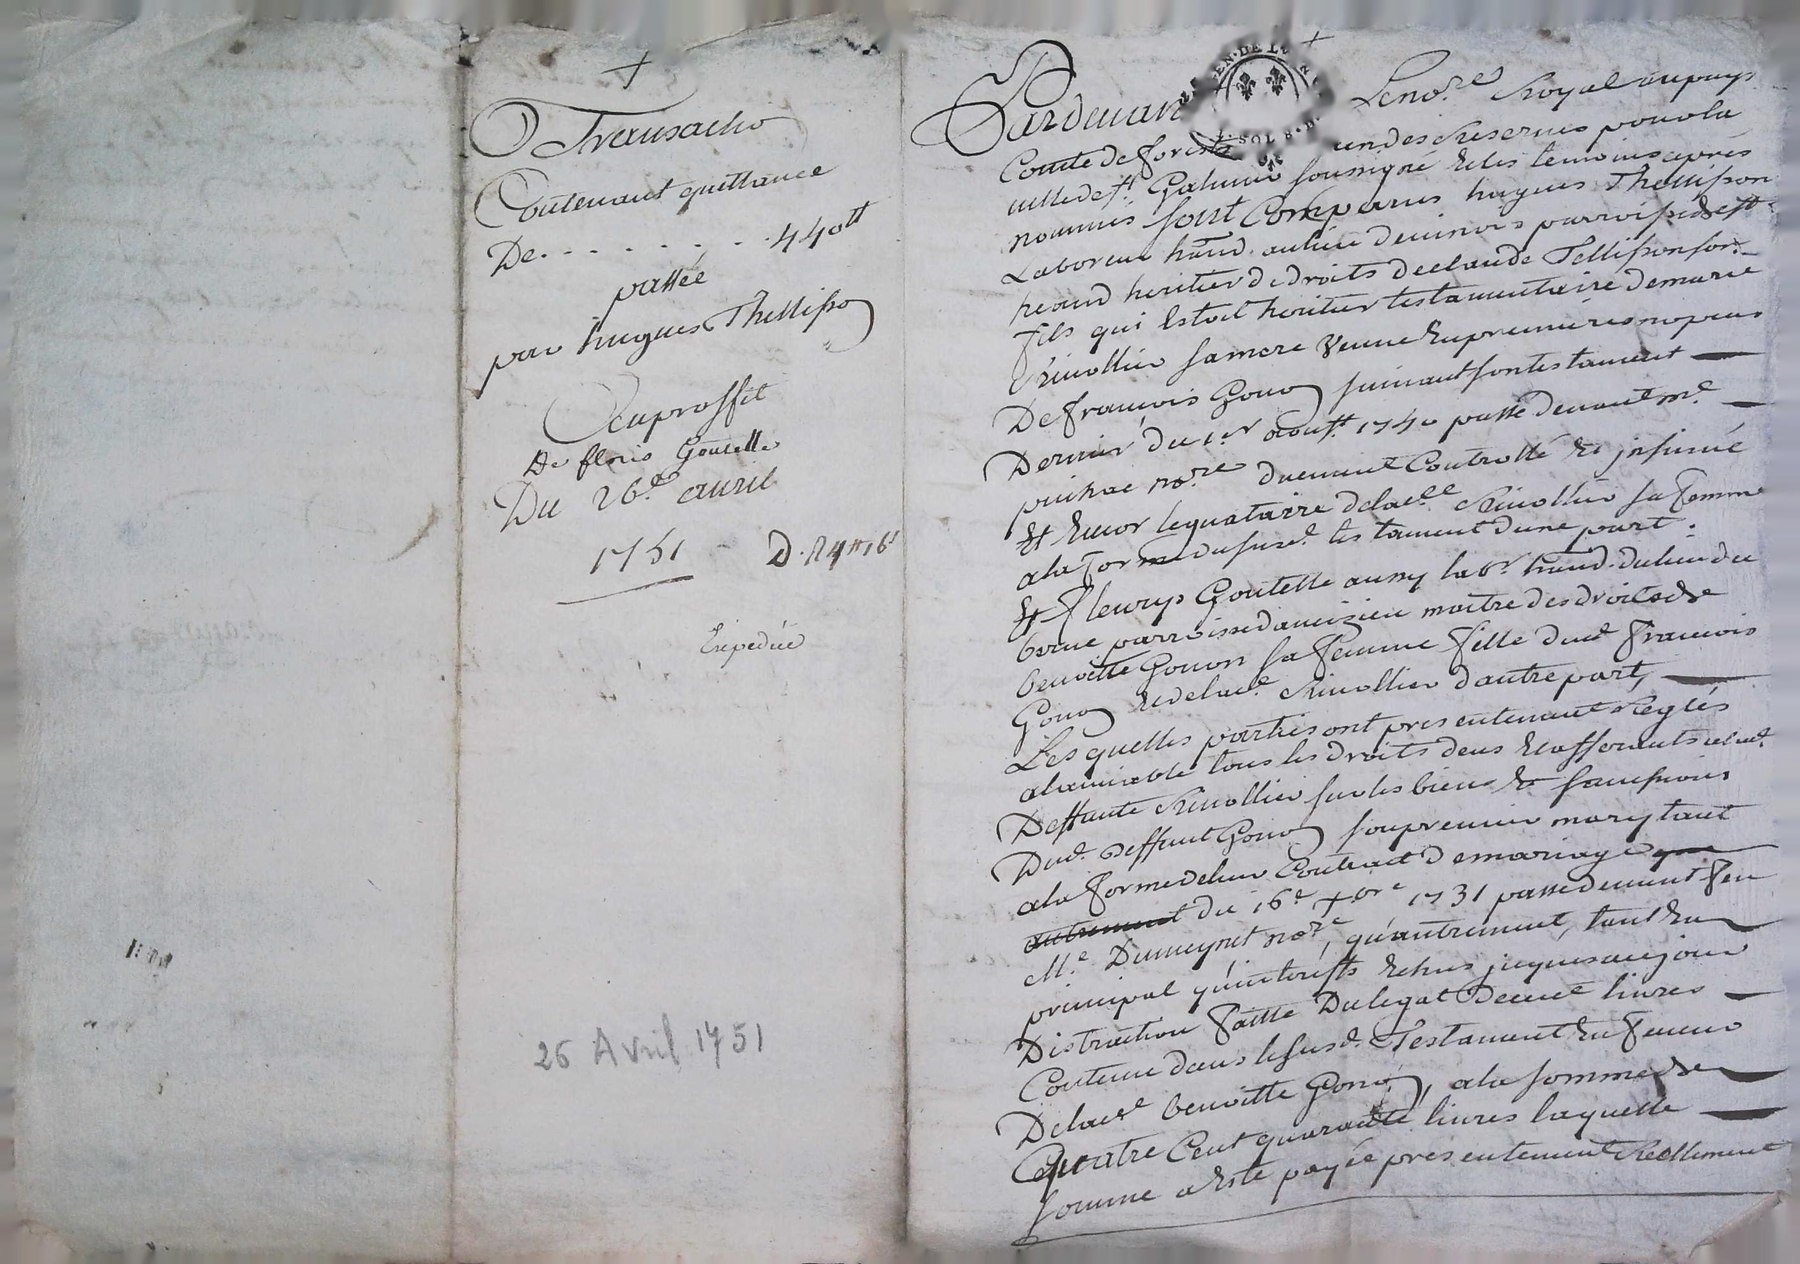 Transaction
Contenant quittance
De . . . . . . . 440tt
passée
par hugues Thellisson
Au proffit
De fleris Goutelle
Du 26e avril
1751 - D. 24tt 16s
Expediée
26 Avril 1751
Pardevant Le nore Royal au pays
Comté de forests un des Reservés pour la
ville de st Galmier soussigné Et les temoins apres
nommés sont Comparus hugues Thellisson
Laboreur habitt. au lieu de parroisse de st
heand heritier de droits de claude Tellisson son
fils qui Estoit heritier testamentaire de marie
Rivollier sa mere veuve En premieres nopces
De françois Gonon suivant son testament
Dernier du 1er aoust 1740 passé devant me
nore duement Controllé Et insinué
Et Encor legataire de lade Rivollier sa femme
a la forme du susd. testament d'une part.
Et fleurys Goutelle aussy labr habitt. du lieu du
berne parroisse d'aveizieu maitre des droits de
benoitte Gonon sa femme fille dud françois
Gonon Et de lade Rivollier d'autre part,
Lesquelles parties ont presentement Reglés
a l'amiable tous les droits deus Et afferants a lad.
Deffunte Rivollier sur les biens Et successions
Dud. deffunt Gonon son premier mary tant
a la forme de leur Contract de mariage que
autrement du 16e xbre 1731 passé devant feu
Me Dumeynet nore, qu'autrement, tant En
principal qu'interests Echus jusques a ce jour
Distraction faitte Du legat de cent livres
Contenu dans le susd. Testament En faveur
De lade benoitte Gonon, a la somme de
Quatre Cent quarante livres laquelle
somme a Esté payée presentement Reellement